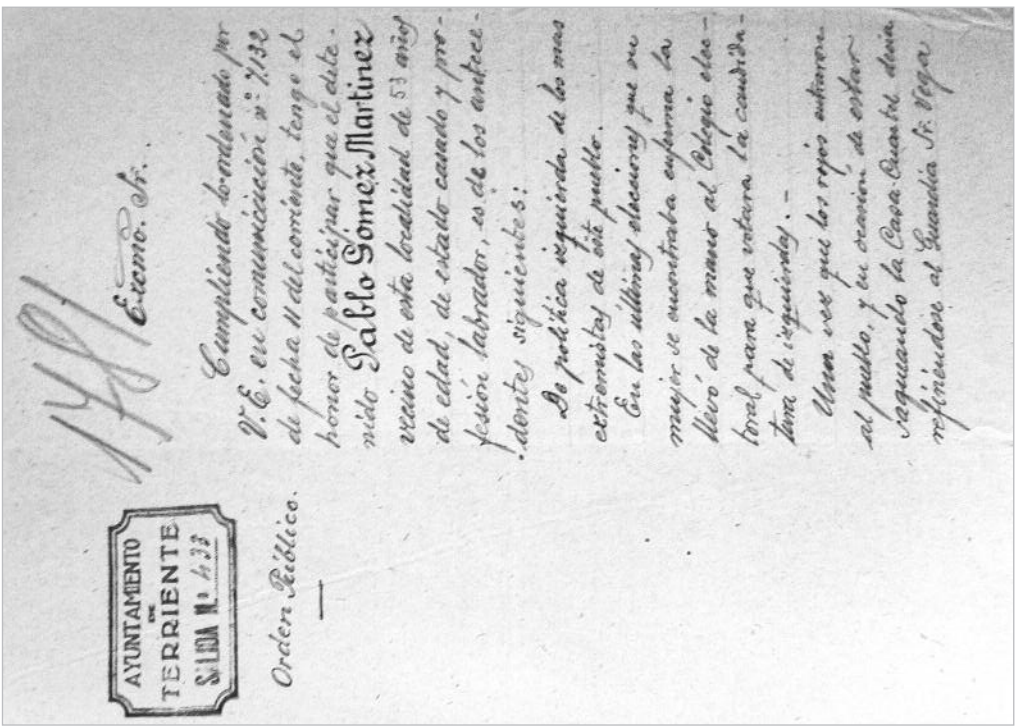 1781
AYUNTAMIENTO
DE
TERRIENTE
SALIDA N.º 433
Orden Público.
Excmo. Sr.
Cumpliendo lo ordenado por
V.E. en comunicación nº 7.132
de fecha 11 del corriente, tengo el
honor de participar que el dete-
nido Pablo Gómez Martinez
vecino de esta localidad de 53 años
de edad, de estado casado y pro-
fesión labrador, es de los antece
dentes siguientes:
De política izquierda de los mas
extremistas de este pueblo.
En las últimas elecciones que su
mujer se encontraba enferma la
llevó de la mano al Colegio elec-
toral para que votara la candida-
tura de izquierdas.-
Una vez que los rojos entraron
al pueblo, y en ocasión de estar
saqueando la Casa-Cuartel decia
refiriendose al Guardia Sr. Vega